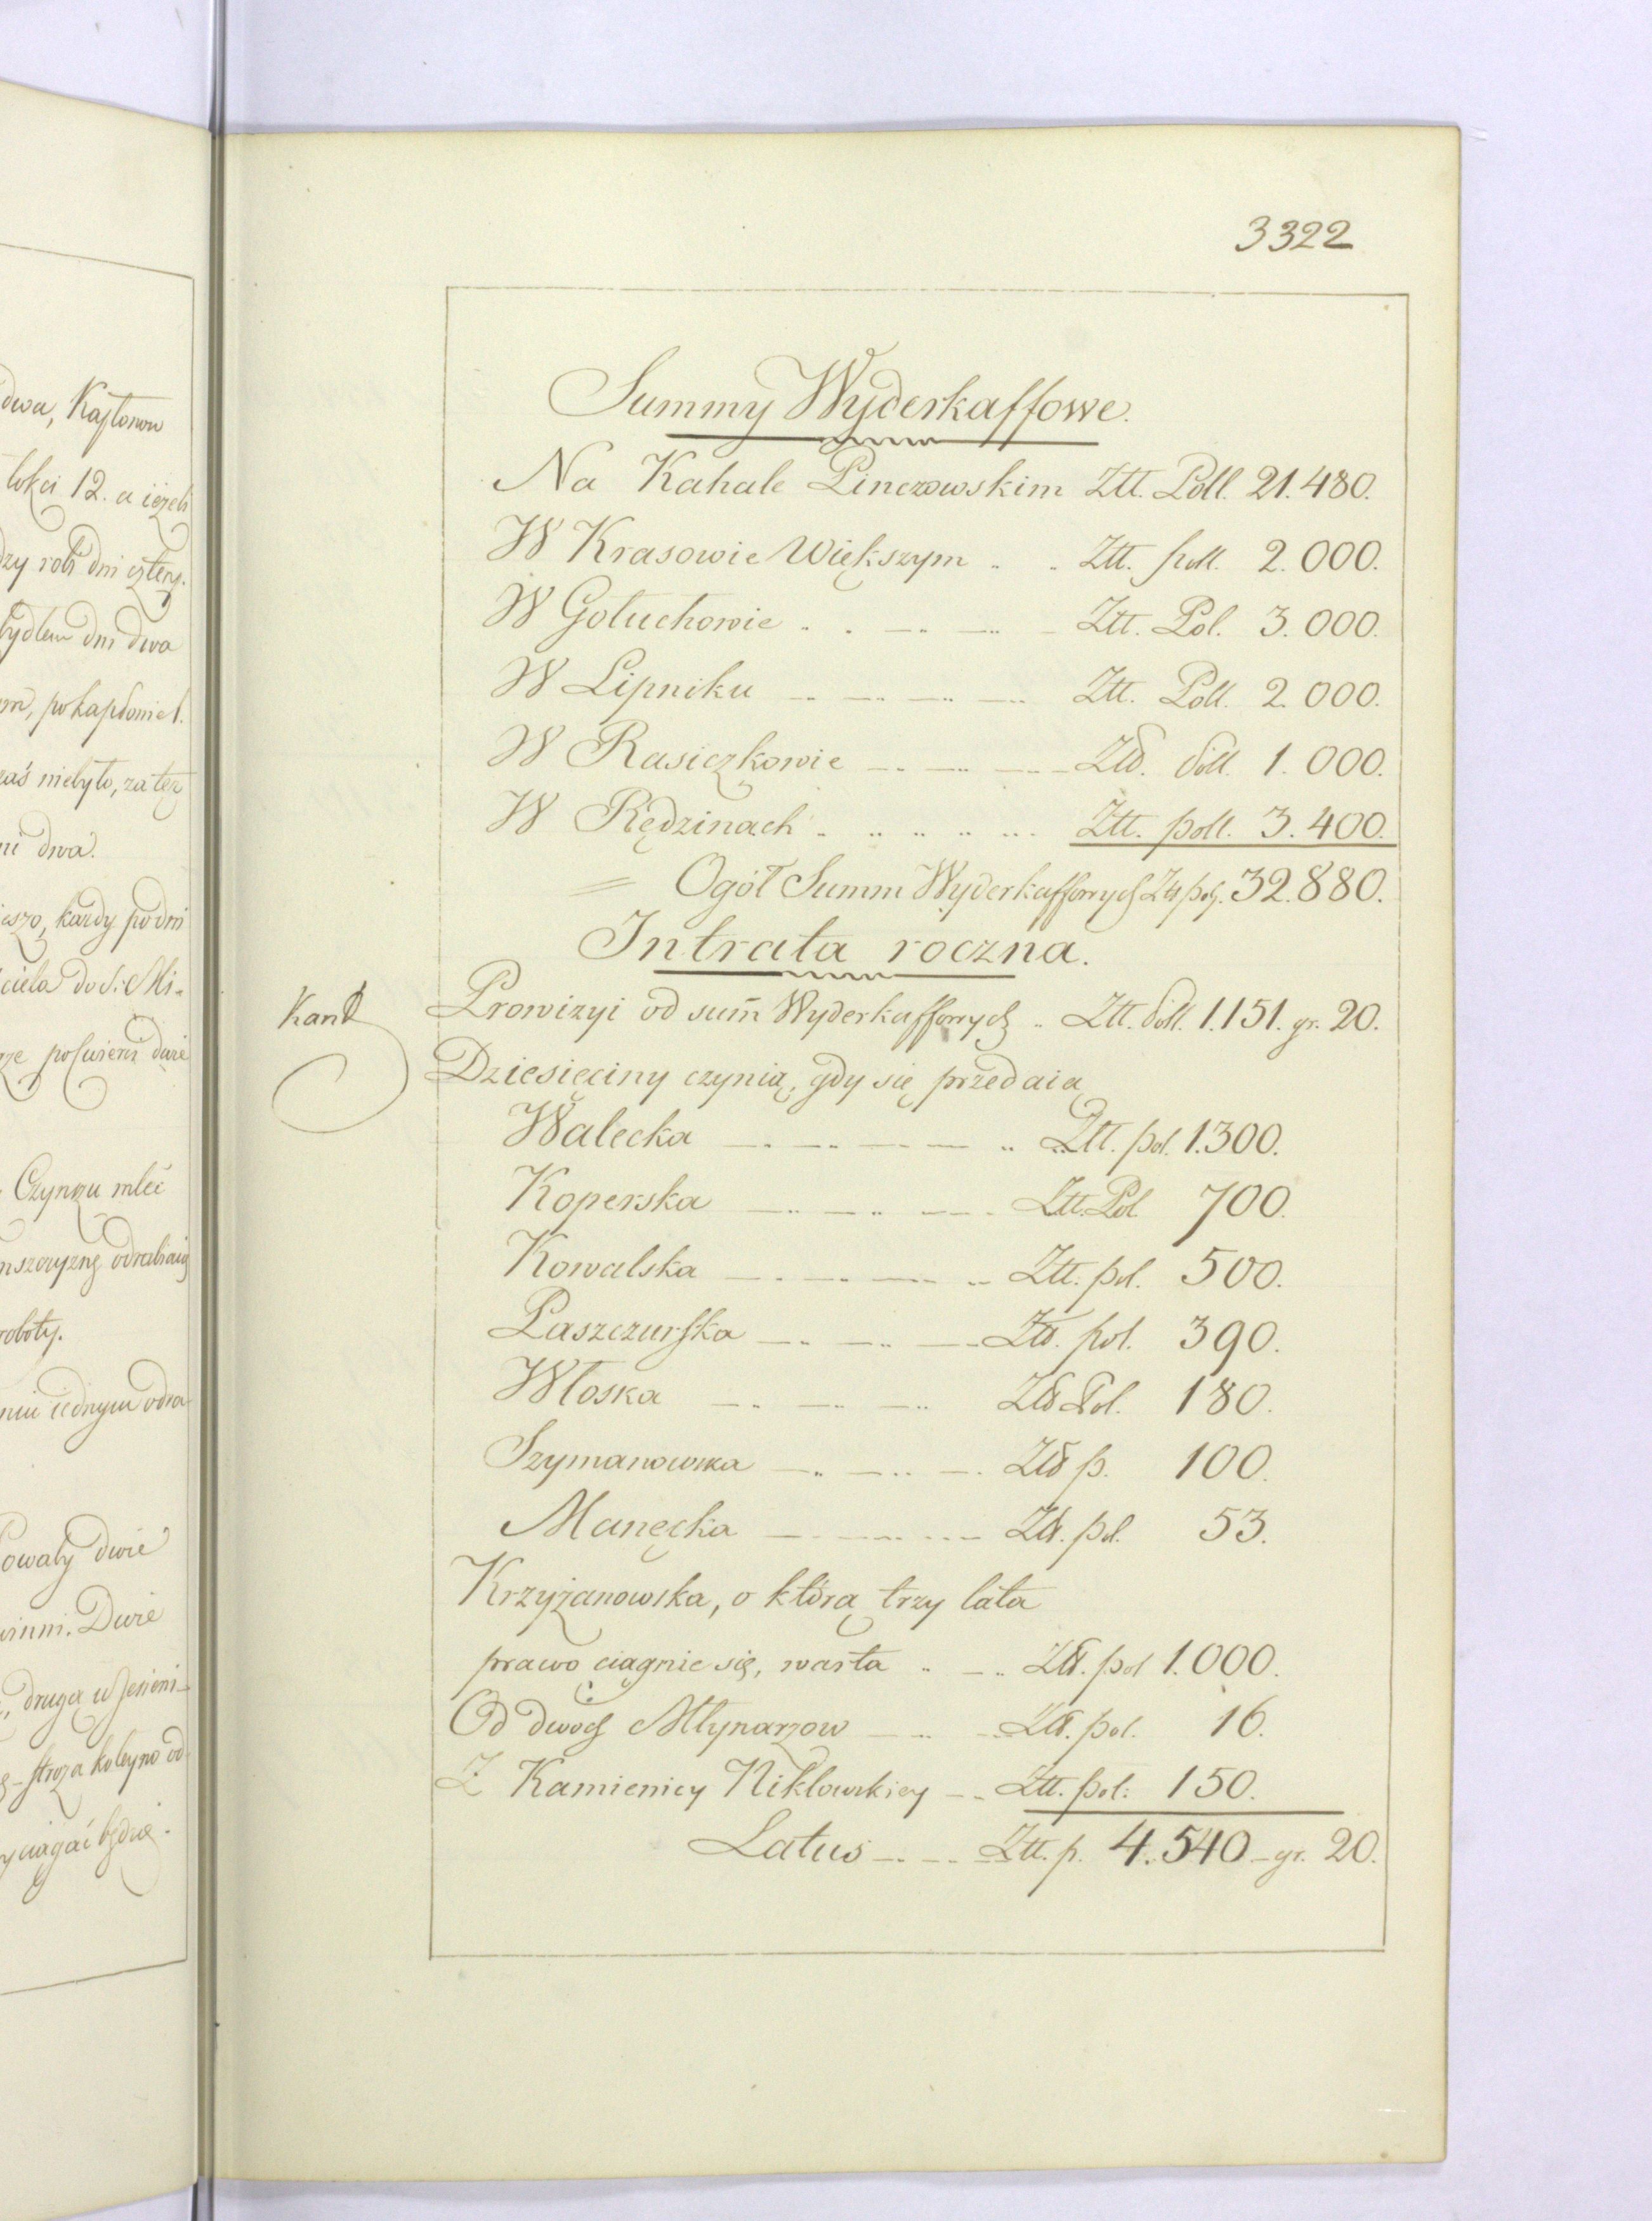 dwa, Kaftanow
łokci 12. a iężeli
dni cztery.
bydłem dni dwa
zaś niebyło, za tez
ni dwa.
każdy po dni
ciela do S. Mi-
dwie
Czynszu mleć
odrabiaią
roboty.
iednym odra-
dwie
winni. Dwie
drugą w Jesieni
stroża koleyno od-
3322
Summy Wyderkaffowe.
Na Kahale Pinczowskim Ztt. Poll. 21.480.
W Krasowie Większym .. . Ztt. poll. 2.000.
W Gołuchowie . . — .. — .. — Ztt. Pol. 3.000.
W Lipniku — .. — .. — .. — .. Ztt. Poll. 2.000.
W Rasiczkowie — .. — .. — .. — Ztt. poll. 1.000.
W Rędzinach . .. .. .. ... Ztt. poll. 3.400.
= Ogół Summ Wyderkaffowych Ztt pol. 32.880.
Intrata roczna.
Prowizyi od sum̄ Wyderkaffowych .. Ztt. poll. 1.151. gr. 20.
Dziesięciny czynią, gdy się przedaią
Walecka — . — .. — . — .. Ztt. pol. 1.300.
Koperska — .. — .. — . Ztt. Pol 700.
Kowalska — . — .. — .. .. Ztt. pol. 500.
Paszczurska — .. — .. — .. Ztt. pol. 390.
Włoska — .. — .. — .. Ztt Pol. 180.
Szymanowska — .. — .. — . Ztt p. 100.
Manęcka — . — .. — Ztt. pol. 53.
Krzyżanowska, o którą trzy lata
prawo ciągnie się, warta .. — .. Ztt. pol 1.000.
Od dwoch Młynarzow — .. — .. Ztt. pol. 16.
Z Kamienicy Niklowskiey — .. Ztt. pol: 150.
Latus — .. — .. Ztt. p. 4.540 — gr. 20.